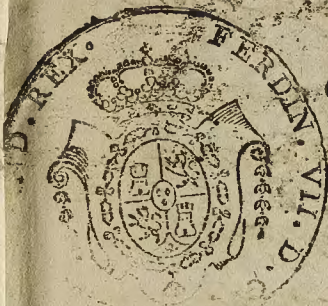 FERDIN. VII. D.
D. REX.